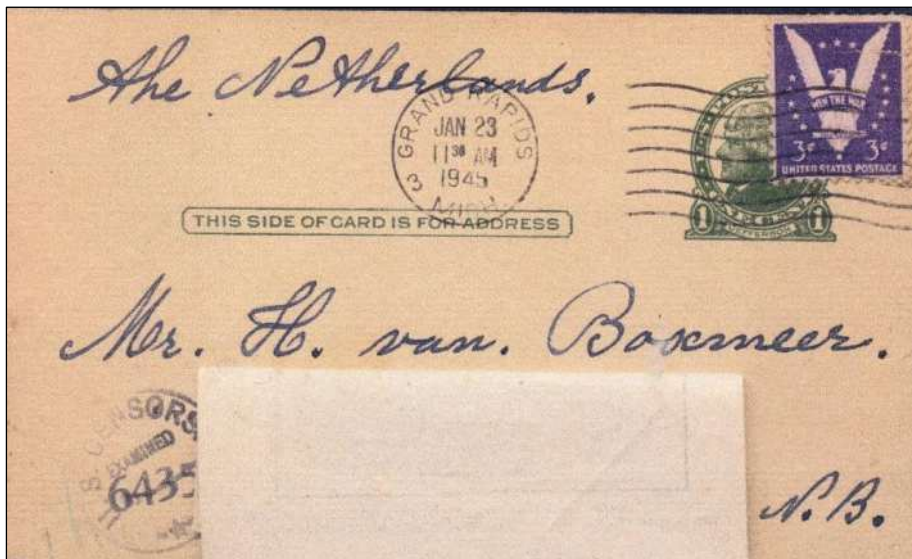 The Netherlands.
GRAND RAPIDS
3
JAN 23
11 30 AM
1945
MICH.
WIN THE WAR
3¢ 3¢
UNITED STATES POSTAGE
1 1
JEFFERSON
THIS SIDE OF CARD IS FOR ADDRESS
Mr. H. van. Boxmeer.
U.S. CENSORS
EXAMINED
6435
N.B.